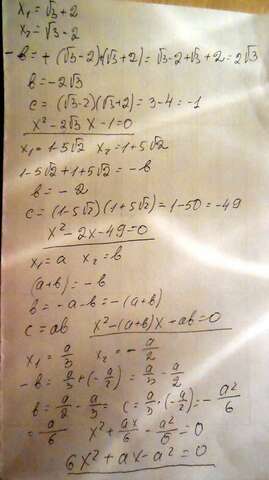 x₁ = √3 + 2
x₂ = √3 - 2
-b = + (√3-2)+(√3+2) = √3-2+√3+2 = 2√3
b = -2√3
c = (√3-2)(√3+2) = 3-4 = -1
x² - 2√3 x - 1 = 0
x₁ = 1-5√2 x₂ = 1+5√2
1-5√2+1+5√2 = -b
b = -2
c = (1-5√2)(1+5√2) = 1-50 = -49
x² - 2x - 49 = 0
x₁ = a x₂ = b
(a+b) = -b
b = -a-b = -(a+b)
c = ab x² - (a+b)x + ab = 0
x₁ = a/3 x₂ = -a/2
-b = a/3 + (-a/2) = a/3 - a/2
b = a/2 - a/3 = c = a/3 · (-a/2) = -a²/6
= a/6 x² + ax/6 - a²/6 = 0
6x² + ax - a² = 0